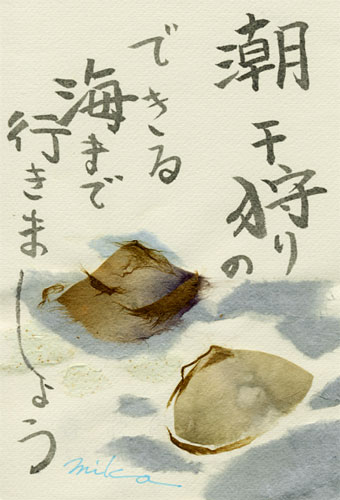 潮干狩りの
できる
海まで
行きましょう
mika